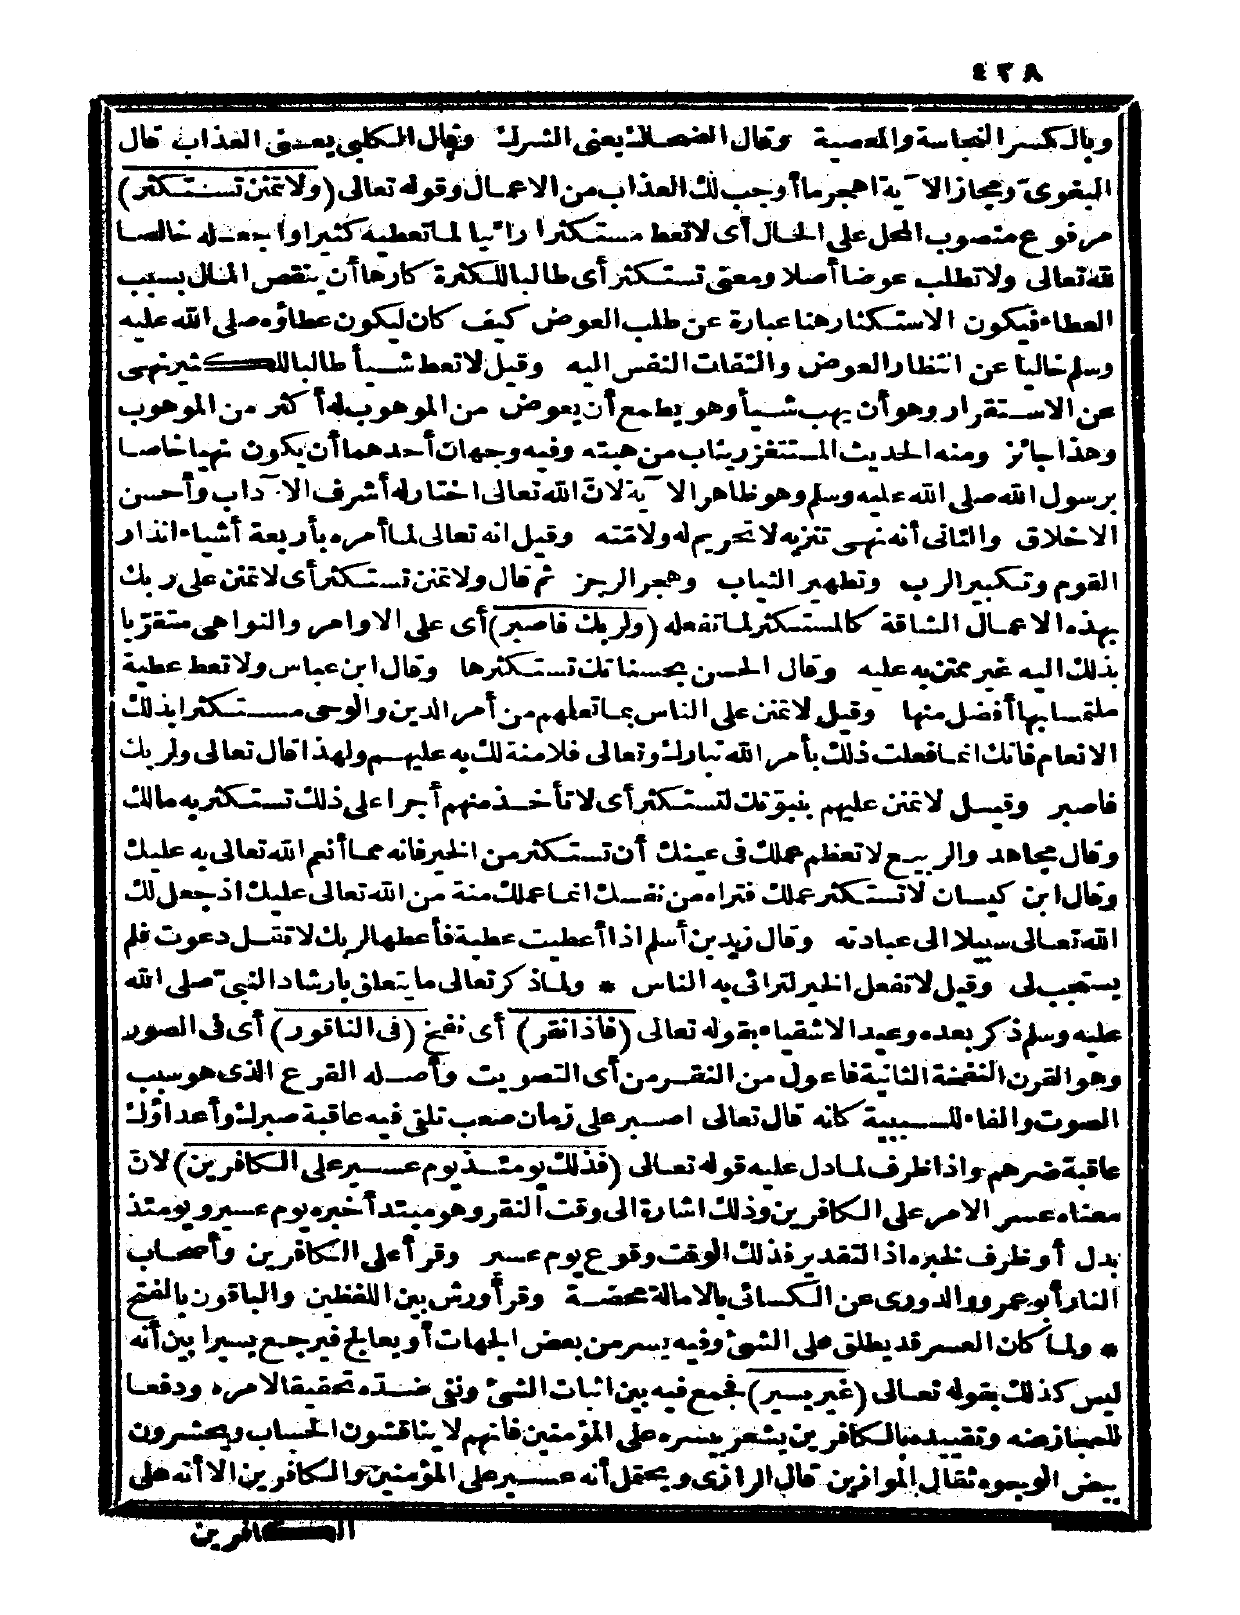 ٤٣٨
وبالكسر النجاسة والمعصية وقال الضحاك يعنى الشرك وقال الكلبى يعنى العذاب قال
البغوىّ ومجاز الآية اهجر ما أوجب لك العذاب من الاعمال وقوله تعالى (ولا تمنن تستكثر)
مرفوع منصوب المحل على الحال أى لا تعط مستكثرا رائيا لما تعطيه كثيرا واجعله خالصا
لله تعالى ولا تطلب عوضا أصلا ومعنى تستكثر أى طالبا للكثرة كارها أن ينقص المال بسبب
العطاء فيكون الاستكثار هنا عبارة عن طلب العوض كيف كان ليكون عطاؤه صلى الله عليه
وسلم خاليا عن انتظار العوض والتفات النفس اليه وقيل لا تعط شيأ طالبا للكثير نهى
عن الاستقرار وهو أن يهب شيأ وهو يطمع أن يعوض من الموهوب له أكثر من الموهوب
وهذا جائز ومنه الحديث المستغزر يثاب من هبته وفيه وجهان أحدهما أن يكون نهيا خاصا
برسول الله صلى الله عليه وسلم وهو ظاهر الآية لانّ الله تعالى اختار له أشرف الآداب وأحسن
الاخلاق والثانى أنه نهى تنزيه لا تحريم له ولامّته وقيل انه تعالى لما أمره بأربعة أشياء انذار
القوم وتكبير الرب وتطهير الثياب وهجر الرجز ثم قال ولا تمنن تستكثر أى لا تمنن على ربك
بهذه الاعمال الشاقة كالمستكثر لما تفعله (ولربك فاصبر) أى على الاوامر والنواهى متقرّبا
بذلك اليه غير ممتن به عليه وقال الحسن بحسناتك تستكثرها وقال ابن عباس ولا تعط عطية
ملتمسا بها أفضل منها وقيل لا تمنن على الناس بما تعلمهم من أمر الدين والوحى مستكثرا بذلك
الانعام فانك انما فعلت ذلك بأمر الله تبارك وتعالى فلا منة لك به عليهم ولهذا قال تعالى ولربك
فاصبر وقيل لا تمنن عليهم بنبوّتك لتستكثر أى لا تأخذ منهم أجرا على ذلك تستكثر به مالك
وقال مجاهد والربيع لا تعظم عملك فى عينك أن تستكثر من الخير فانه مما أنعم الله تعالى به عليك
وقال ابن كيسان لا تستكثر عملك فتراه من نفسك انما عملك منة من الله تعالى عليك اذ جعل لك
الله تعالى سبيلا الى عبادته وقال زيد بن أسلم اذا أعطيت عطية فأعطها لربك لا تقل دعوت فلم
يستجب لى وقيل لا تفعل الخير لترائى به الناس * ولما ذكر تعالى ما يتعلق بارشاد النبىّ صلى الله
عليه وسلم ذكر بعده وعيد الاشقياء بقوله تعالى (فاذا نقر) أى نفخ (فى الناقور) أى فى الصور
وهو القرن النفخة الثانية فاعول من النقر من أى التصويت وأصله القرع الذى هو سبب
الصوت والفاء للسببية كانه قال تعالى اصبر على زمان صعب تلقى فيه عاقبة صبرك وأعداؤك
عاقبة ضرهم واذا ظرف لما دل عليه قوله تعالى (فذلك يومئذ يوم عسير على الكافرين) لانّ
معناه عسر الامر على الكافرين وذلك اشارة الى وقت النقر وهو مبتدأ خبره يوم عسير ويومئذ
بدل أو ظرف لخبره اذ التقدير فذلك الوقت وقوع يوم عسير وقرأ على الكافرين وأصحاب
النار أبو عمرو والدورى عن الكسائى بالامالة محضة وقرأ ورش بين اللفظين والباقون بالفتح
* ولما كان العسر قد يطلق على الشئ وفيه يسر من بعض الجهات أو يعالج فيرجع يسيرا بين أنه
ليس كذلك بقوله تعالى (غير يسير) فجمع فيه بين اثبات الشئ ونفى ضدّه تحقيقا لامره ودفعا
للمجاز عنه وتقييده بالكافرين يشعر بيسره على المؤمنين فانهم لا يناقشون الحساب ويحشرون
بيض الوجوه ثقال الموازين قال الرازى ويحتمل أنه عسير على المؤمنين والكافرين الا أنه على
الكافرين